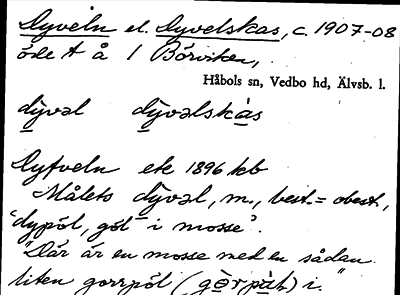 Dyveln el. Dyvelskas, c. 1907-08
öde t å 1 Börviken,
Håbols sn, Vedbo hd, Älvsb. l.
dȳvəl dȳvəlskas
Dyfveln etc 1896 kb
Målets dȳvəl, m., best. = obest.,
"dypöl, göl i mosse".
"Där är en mosse med en sådan
liten gorrpöl (gòrpàl) i."